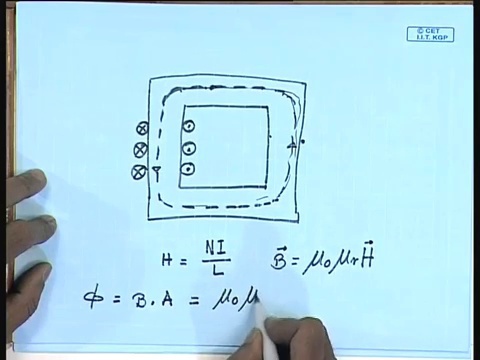 © CET
I.I.T. KGP
H = NI/L    B⃗ = μ₀μᵣH⃗
ϕ = B.A = μ₀μ